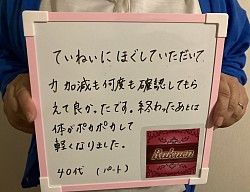 ていねいにほぐしていただいて、
力加減も何度も確認してもら
えて良かったです。終わったあとは
体がポカポカして
軽くなりました。
40代 (パート)
Rakuen